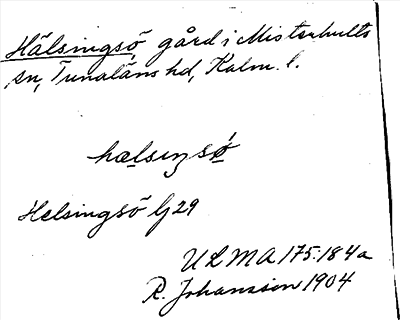 Hälsingsö, gård i Misterhults
sn, Tunaläns hd, Kalm. l.
hælsıŋsǿ
Helsingsö Gj 29
ULMA 175:184a
R. Johansson 1904